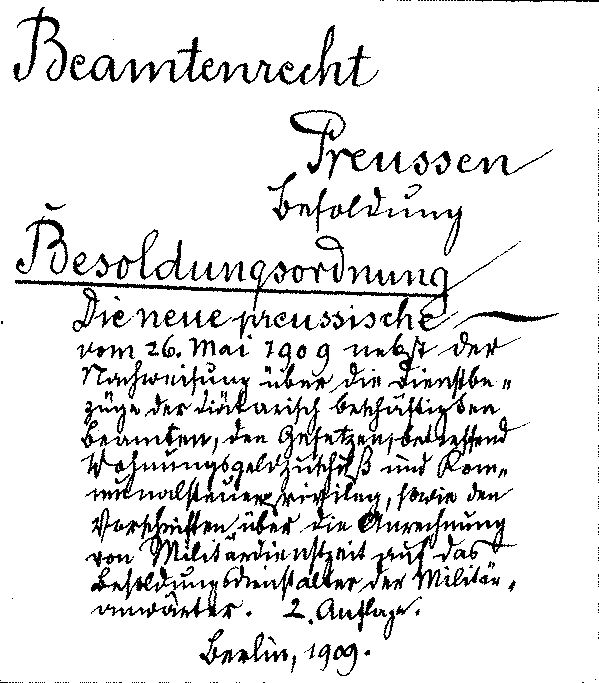 Beamtenrecht
Preussen
Besoldung
Besoldungsordnung
Die neue preussische —
vom 26. Mai 1909 nebst der
Nachweisung über die Dienstbe-
züge der diätarisch beschäftigten
Beamten, den Gesetzen, betreffend
Wohnungsgeldzuschuß und Kom-
munalsteuerprivileg, sowie den
Vorschriften über die Anrechnung
von Militärdienstzeit auf das
Besoldungsdienstalter der Militär-
anwärter. 2. Auflage.
Berlin, 1909.